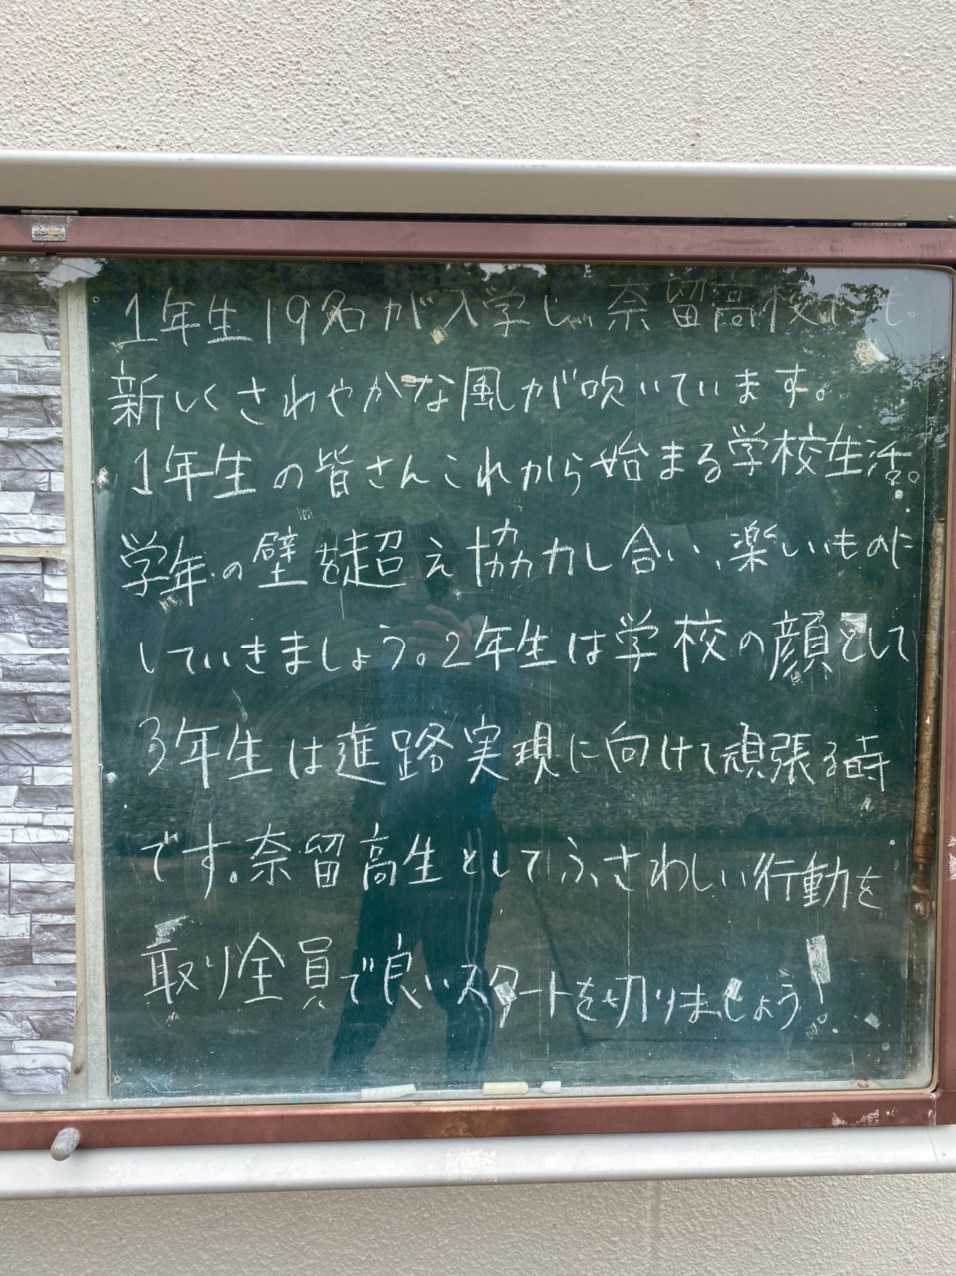 1年生19名が入学し、奈留高校にも
新しくさわやかな風が吹いています。
1年生の皆さんこれから始まる学校生活。
学年の壁を超え協力し合い、楽しいものに
していきましょう。2年生は学校の顔として
3年生は進路実現に向けて頑張る時
です。奈留高生としてふさわしい行動を
取り全員で良いスタートを切りましょう!